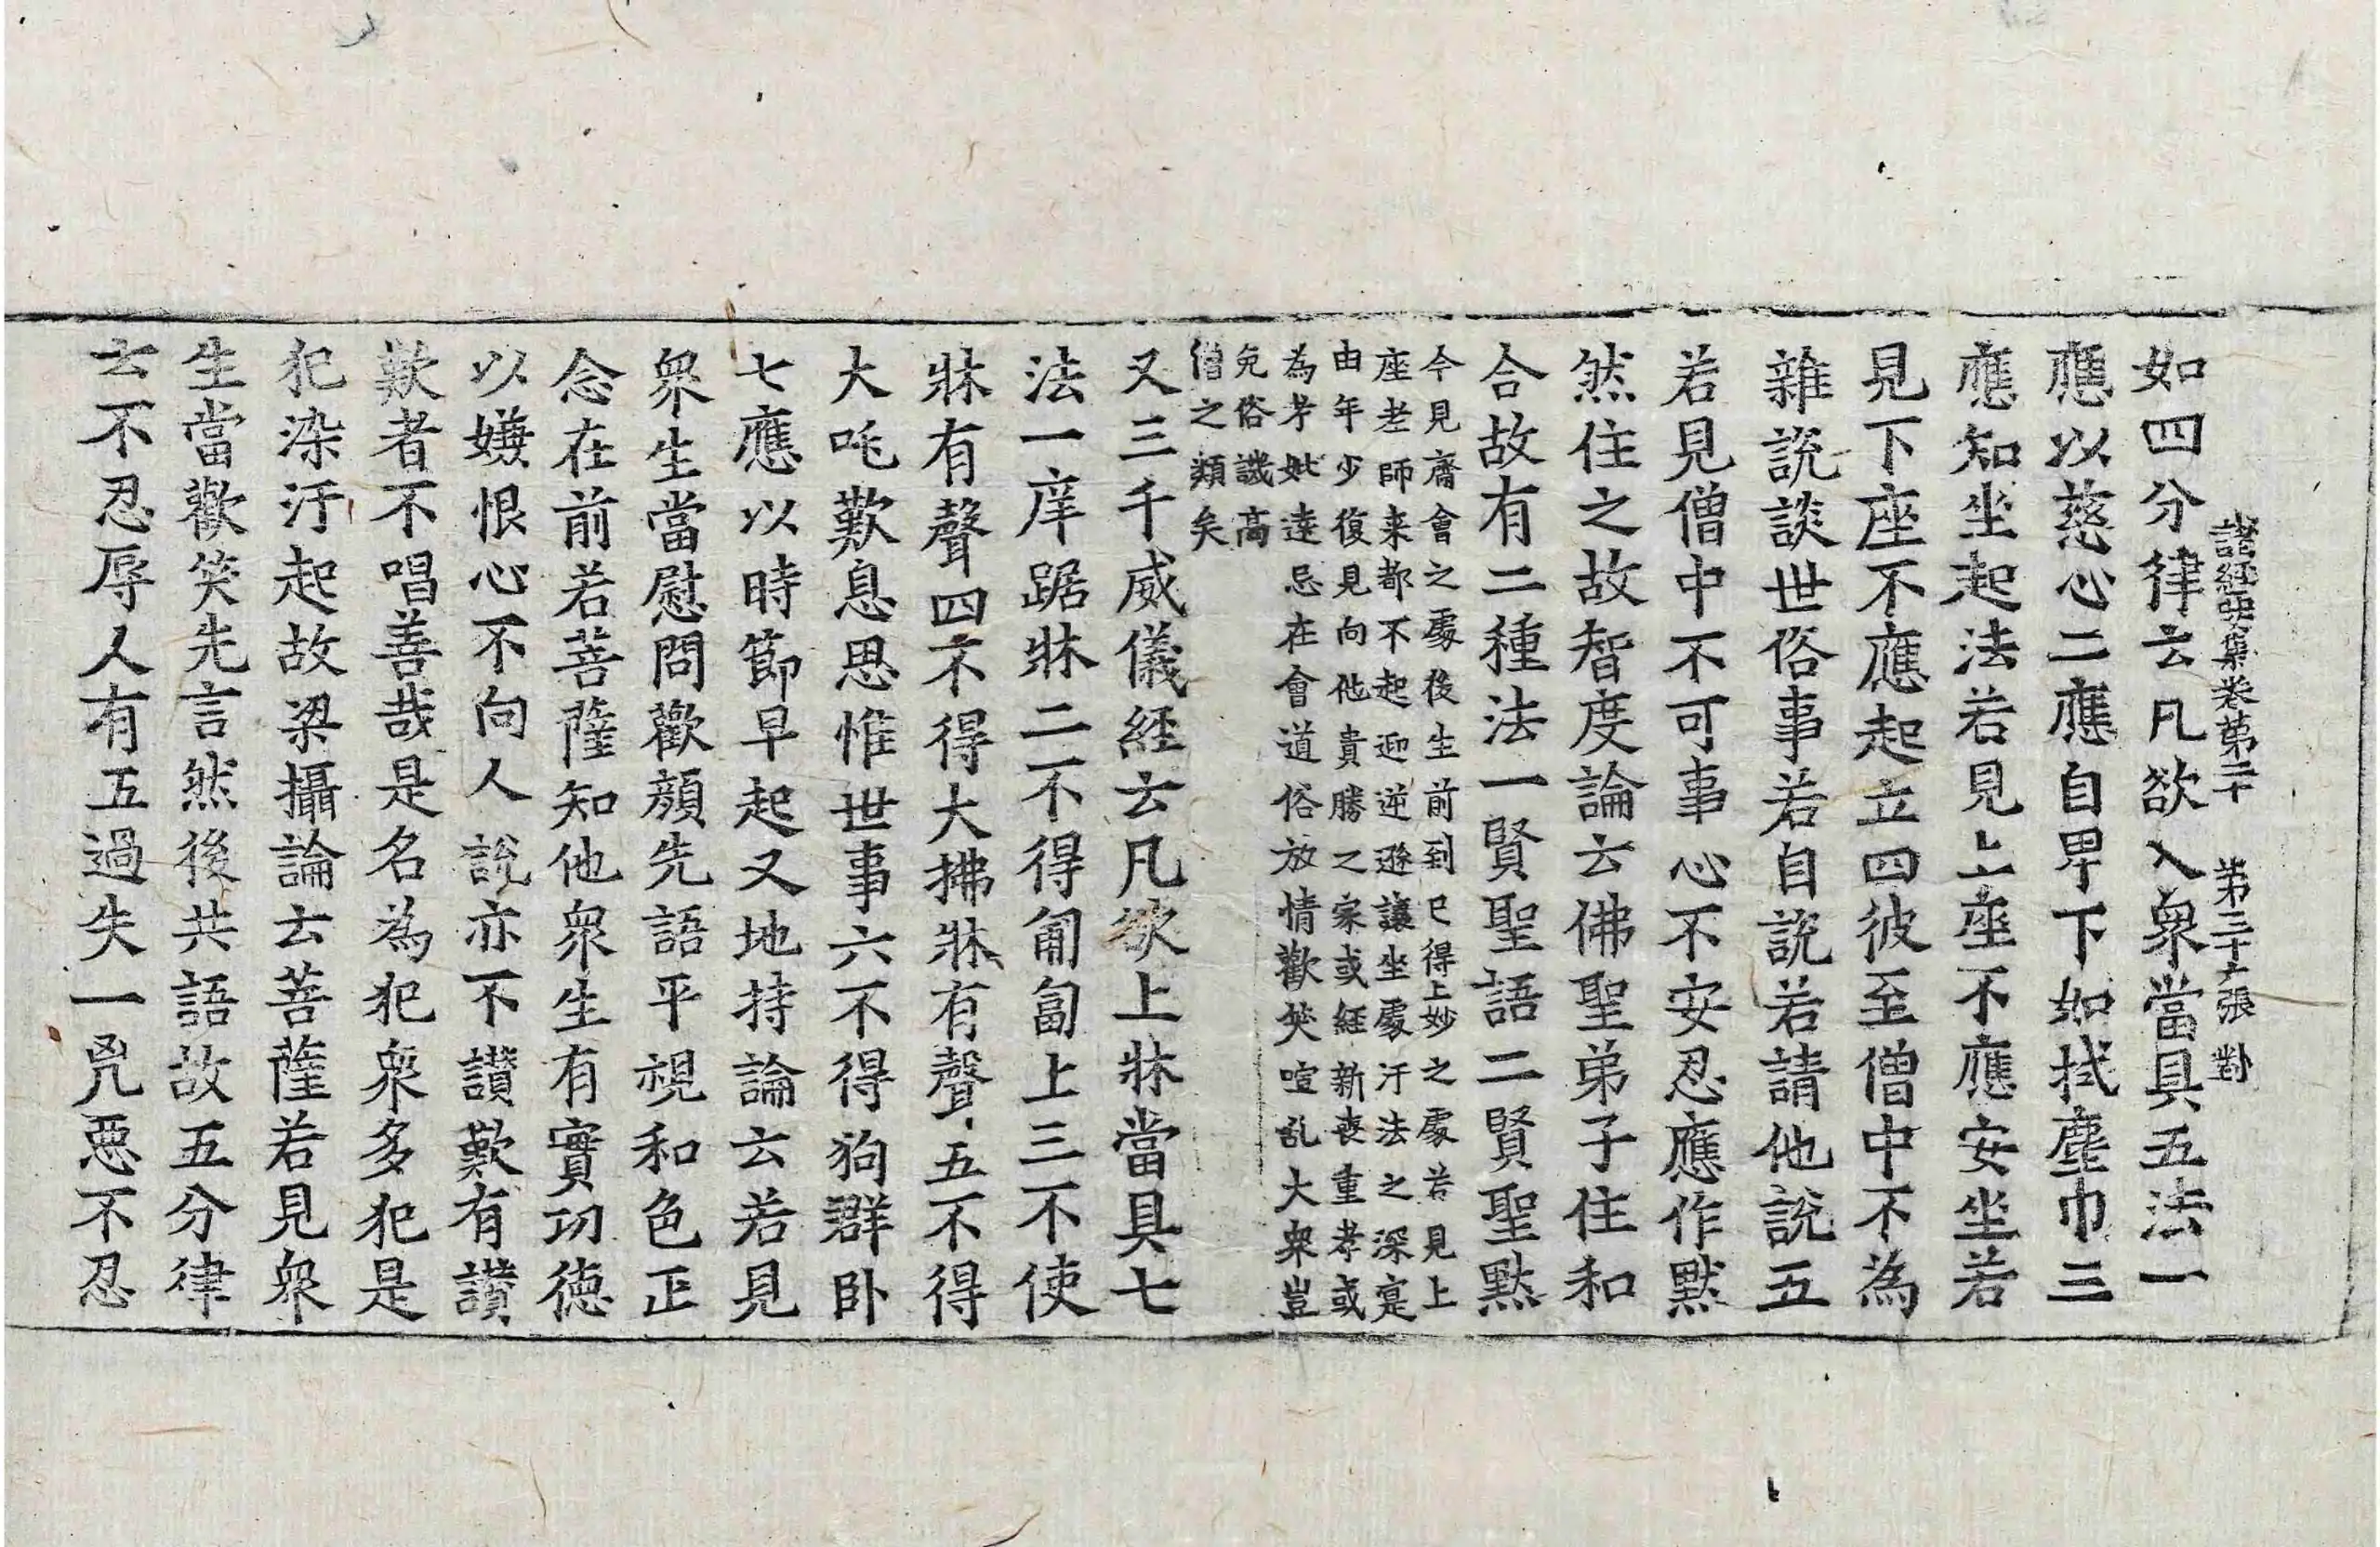 諸經要集卷第二十 第三十六張 對
如四分律云凡欲入衆當具五法一
應以慈心二應自卑下如拭塵巾三
應知坐起法若見上座不應安坐若
見下座不應起立四彼至僧中不為
雜說談世俗事若自說若請他說五
若見僧中不可事心不安忍應作默
然住之故智度論云佛聖弟子住和
合故有二種法一賢聖語二賢聖默
今見齋會之處後生前到已得上妙之處若見上
座老師来都不起迎逆遜讓坐處汙法之深寔
由年少復見向他貴勝之家或經新喪重孝或
為考妣遠忌在會道俗放情歡笑喧乱大衆豈
免俗譏高
僧之類矣
又三千威儀經云凡欲上牀當具七
法一庠踞牀二不得匍匐上三不使
牀有聲四不得大拂牀有聲五不得
大吒歎息思惟世事六不得狗群卧
七應以時節早起又地持論云若見
衆生當慰問歡顏先語平視和色正
念在前若菩薩知他衆生有實功德
以嫌恨心不向人說亦不讃歎有讃
歎者不唱善哉是名為犯衆多犯是
犯染汙起故梁攝論云菩薩若見衆
生當歡笑先言然後共語故五分律
云不忍辱人有五過失一兇惡不忍